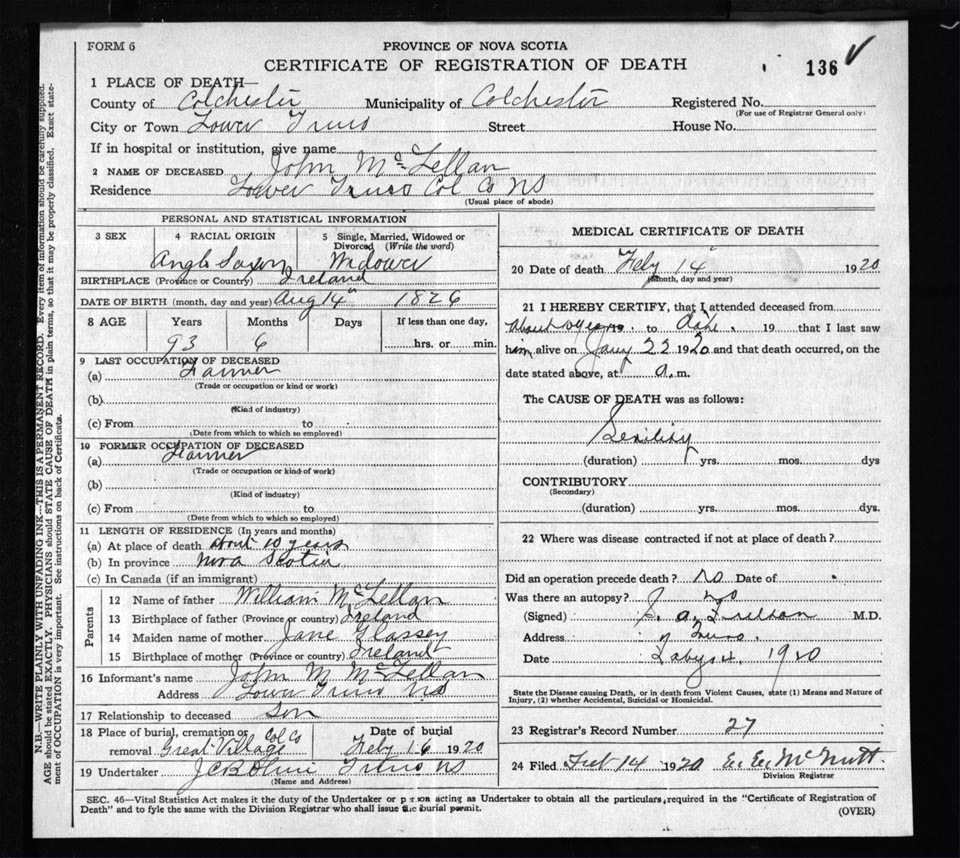 FORM 6
PROVINCE OF NOVA SCOTIA
CERTIFICATE OF REGISTRATION OF DEATH
136
1 PLACE OF DEATH—
County of Colchester Municipality of Colchester Registered No.
(For use of Registrar General only)
City or Town Lower Truro Street House No.
If in hospital or institution, give name
2 NAME OF DECEASED John McLellan
Residence Lower Truro Col Co NS
(Usual place of abode)
PERSONAL AND STATISTICAL INFORMATION
3 SEX 4 RACIAL ORIGIN 5 Single, Married, Widowed or Divorced (Write the word)
Anglo Saxon Widower
BIRTHPLACE (Province or Country) Ireland
DATE OF BIRTH (month, day and year) Aug 14th 1826
8 AGE Years Months Days If less than one day,
93 6 hrs. or min.
9 LAST OCCUPATION OF DECEASED
(a) Farmer
(Trade or occupation or kind or work)
(b)
(Kind of industry)
(c) From to
(Date from which to which so employed)
10 FORMER OCCUPATION OF DECEASED
(a) Farmer
(Trade or occupation or kind of work)
(b)
(Kind of industry)
(c) From to
(Date from which to which so employed)
11 LENGTH OF RESIDENCE (In years and months)
(a) At place of death about 10 years
(b) In province Nova Scotia
(c) In Canada (if an immigrant)
Parents
12 Name of father William McLellan
13 Birthplace of father (Province or country) Ireland
14 Maiden name of mother Jane Glassey
15 Birthplace of mother (Province or country) Ireland
16 Informant's name John M McLellan
Address Lower Truro NS
17 Relationship to deceased Son
18 Place of burial, cremation or removal Great Village Col Co
Date of burial Feby 16 1920
19 Undertaker Truro NS
(Name and Address)
MEDICAL CERTIFICATE OF DEATH
20 Date of death Feby 14th 1920
(Month, day and year)
21 I HEREBY CERTIFY, that I attended deceased from
About years. to date. 19 that I last saw
him alive on Jany 22 1920 and that death occurred, on the
date stated above, at a.m.
The CAUSE OF DEATH was as follows:
Senility
(duration) yrs. mos. dys
CONTRIBUTORY
(Secondary)
(duration) yrs. mos. dys.
22 Where was disease contracted if not at place of death?
Did an operation precede death? no Date of
Was there an autopsy? no
(Signed) M.D.
Address Truro.
Date 1920
State the Disease causing Death, or in death from Violent Causes, state (1) Means and Nature of
Injury, (2) whether Accidental, Suicidal or Homicidal.
23 Registrar's Record Number 27
24 Filed Feb 14 1920 McNutt.
Division Registrar
SEC. 46—Vital Statistics Act makes it the duty of the Undertaker or person acting as Undertaker to obtain all the particulars required in the "Certificate of Registration of
Death" and to fyle the same with the Division Registrar who shall issue the burial permit.
(OVER)
N.B.—WRITE PLAINLY WITH UNFADING INK—THIS IS A PERMANENT RECORD. Every item of information should be carefully supplied.
AGE should be stated EXACTLY. PHYSICIANS should STATE CAUSE OF DEATH in plain terms, so that it may be properly classified. Exact state-
ment of OCCUPATION is very important. See instructions on back of Certificate.